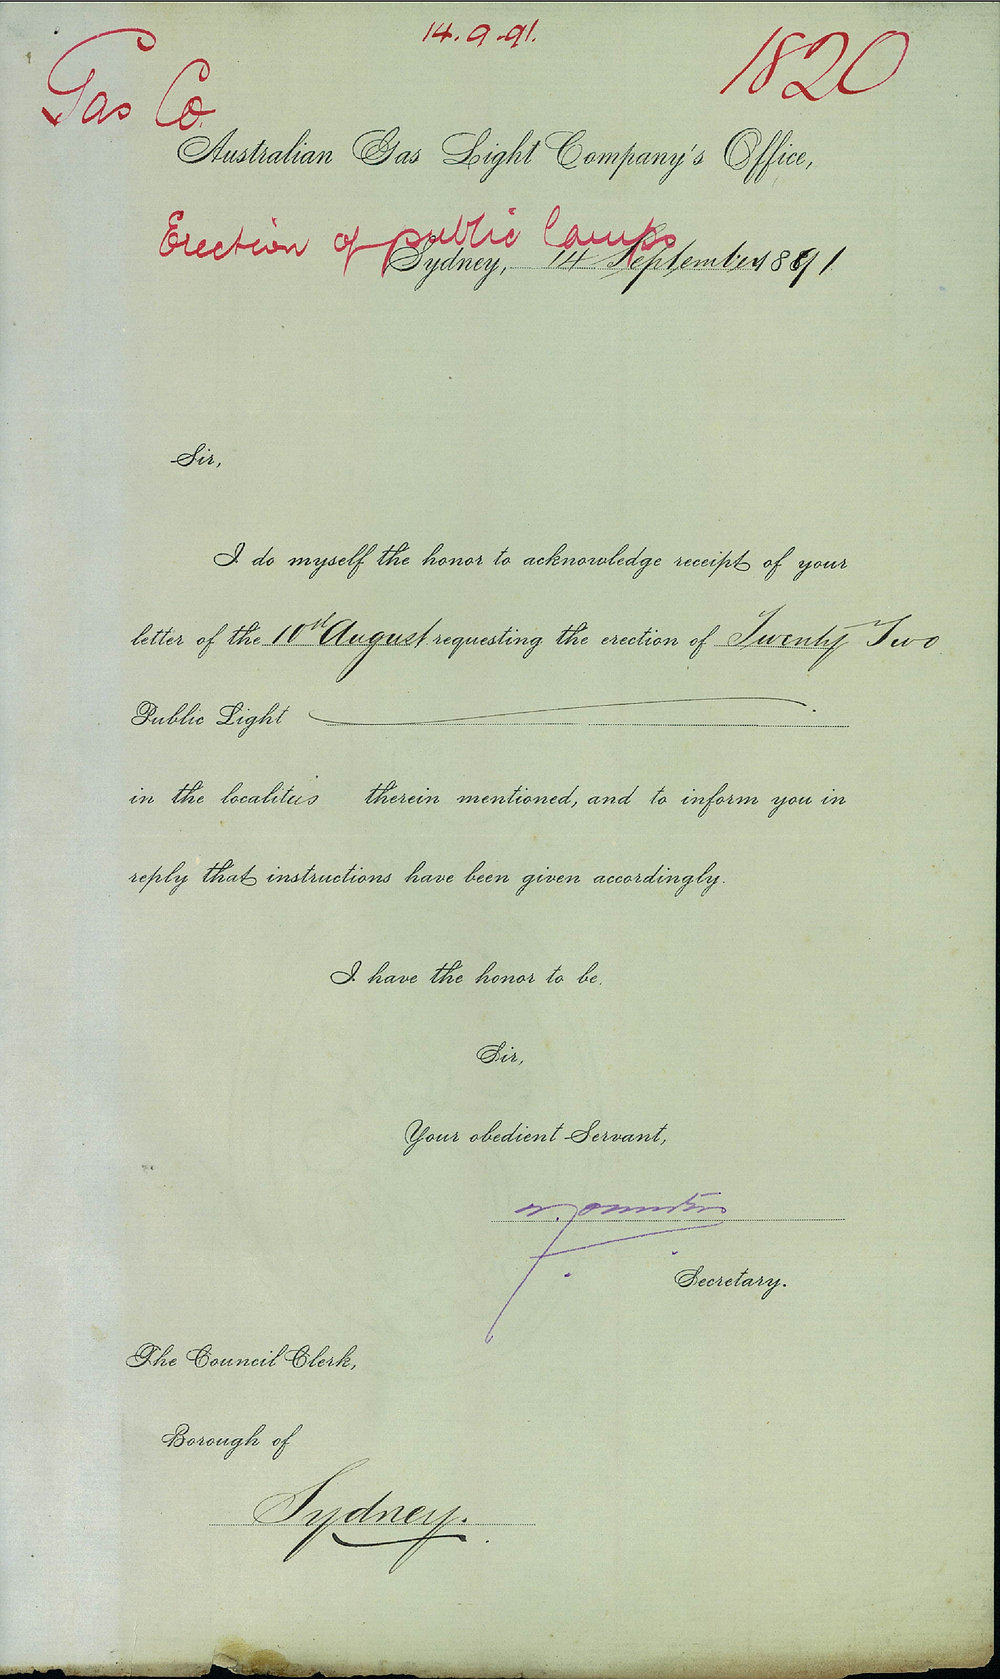 14.9.91.
1820
Gas Co.
Australian Gas Light Company's Office,
Erection of public lamps
Sydney, 14 September 1891
Sir,
I do myself the honor to acknowledge receipt of your
letter of the 10th August requesting the erection of Twenty Two
Public Light
in the localities therein mentioned, and to inform you in
reply that instructions have been given accordingly.
I have the honor to be,
Sir,
Your obedient Servant,
Secretary.
The Council Clerk,
Borough of
Sydney.